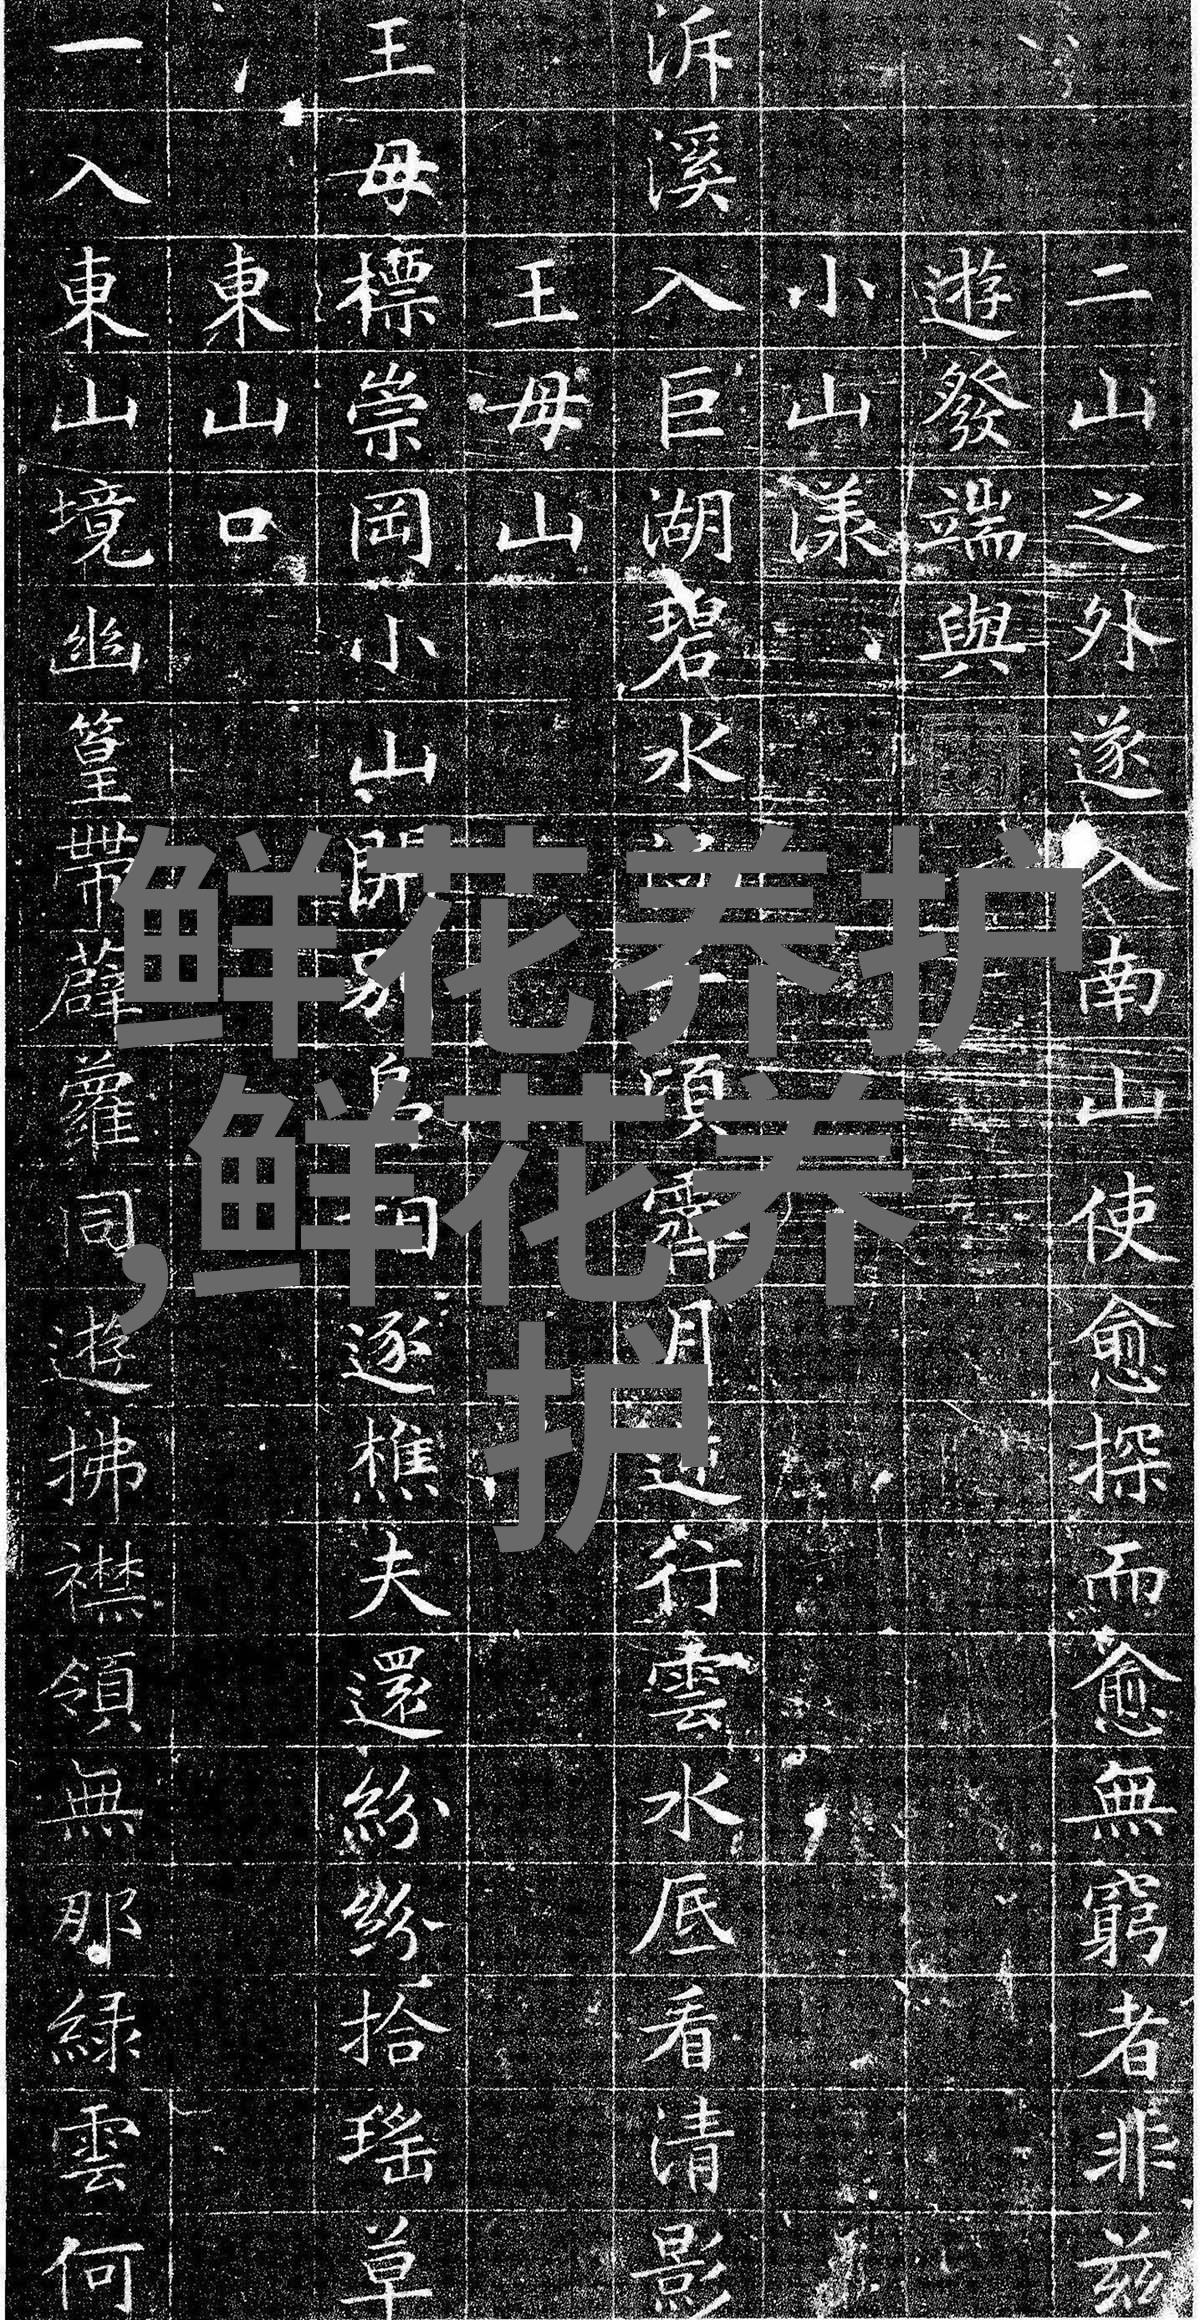 二山之外遂入南山使愈探而愈無窮者非兹
遊發端與
小山漾
泝溪入巨湖碧水頃霽月行雲水底看清影
王母山
王母標崇岡小山開別相逐樵夫還紛紛拾瑤草
東山口
一入東山境幽篁帶薜蘿同遊拂襟領無那緑雲何
鲜花养护
,鲜花养
护